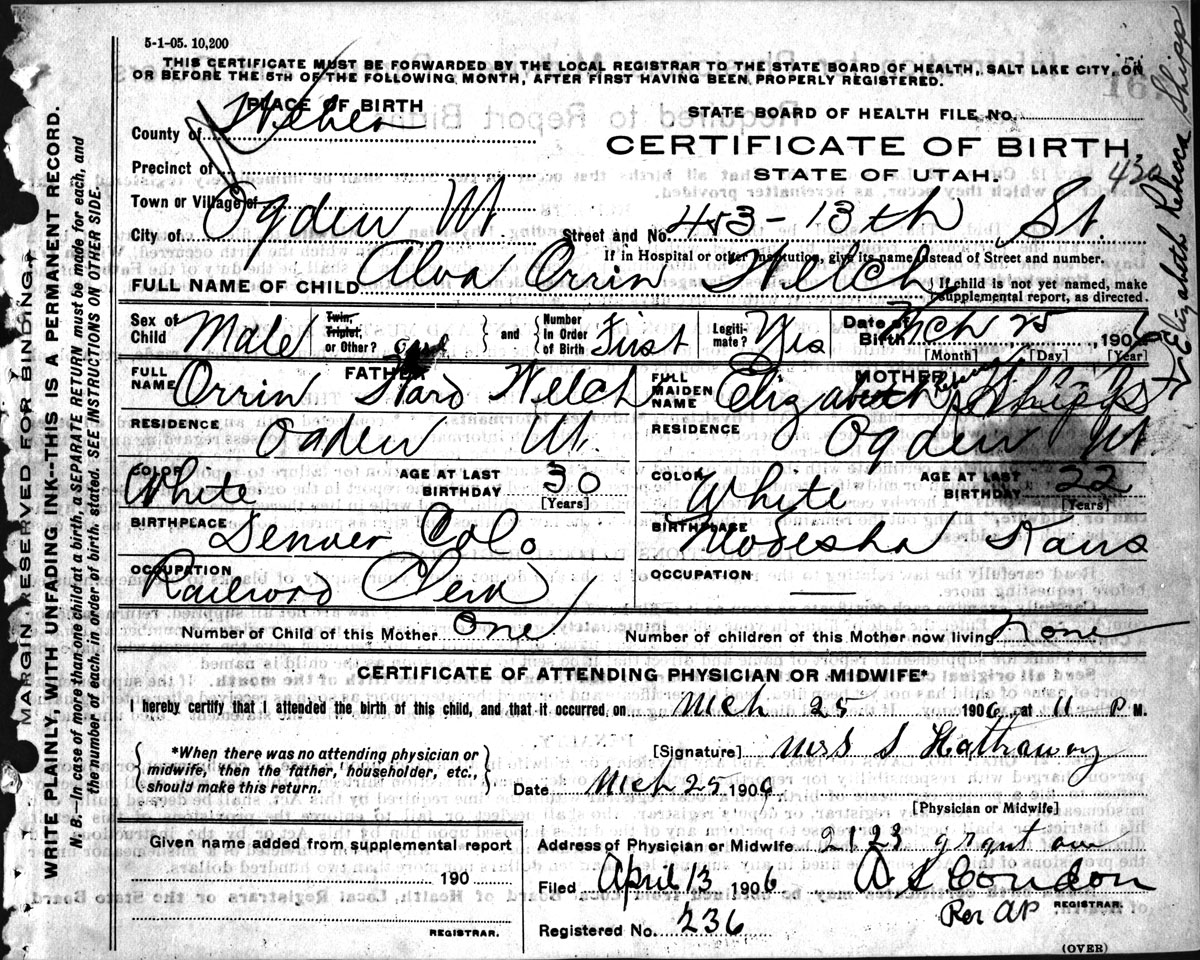 5-1-05. 10,200
THIS CERTIFICATE MUST BE FORWARDED BY THE LOCAL REGISTRAR TO THE STATE BOARD OF HEALTH, SALT LAKE CITY, ON
OR BEFORE THE 5TH OF THE FOLLOWING MONTH, AFTER FIRST HAVING BEEN PROPERLY REGISTERED.
PLACE OF BIRTH
STATE BOARD OF HEALTH FILE No.
County of Weber
CERTIFICATE OF BIRTH
430
Precinct of
STATE OF UTAH.
Town or Village of
City of Ogden Ut Street and No. 453 - 13th St.
If in Hospital or other Institution, give its name instead of Street and number.
FULL NAME OF CHILD Alva Orrin Welch { If child is not yet named, make
supplemental report, as directed.
Sex of Child Male Twin, Triplet, or Other? and Number in Order of Birth First Legitimate? Yes Date of Birth Mch 25, 1906
[Month] [Day] [Year]
FATHER
MOTHER
FULL NAME Orrin Ward Welch
FULL MAIDEN NAME Elizabeth Rebecca Shipps
RESIDENCE Ogden Ut.
RESIDENCE Ogden Ut
COLOR White AGE AT LAST BIRTHDAY 30 [Years]
COLOR White AGE AT LAST BIRTHDAY 22 [Years]
BIRTHPLACE Denver Colo
BIRTHPLACE Neodesha Kans
OCCUPATION Railroad Clerk
OCCUPATION —
Number of Child of this Mother One Number of children of this Mother now living None
CERTIFICATE OF ATTENDING PHYSICIAN OR MIDWIFE*
I hereby certify that I attended the birth of this child, and that it occurred on Mch 25 1906, at 11 P M.
*When there was no attending physician or
midwife, then the father, householder, etc.,
should make this return.
[Signature] Mrs S Hattaway
Date Mch 25 1906
[Physician or Midwife]
Given name added from supplemental report
190
REGISTRAR.
Address of Physician or Midwife 2123 grant ave
Filed April 13 1906 A S Condon
REGISTRAR.
Per AP
Registered No. 236
(OVER)
MARGIN RESERVED FOR BINDING.
WRITE PLAINLY, WITH UNFADING INK--THIS IS A PERMANENT RECORD.
N. B.--In case of more than one child at a birth, a SEPARATE RETURN must be made for each, and
the number of each, in order of birth, stated. SEE INSTRUCTIONS ON OTHER SIDE.
Elizabeth Rebecca Shipp